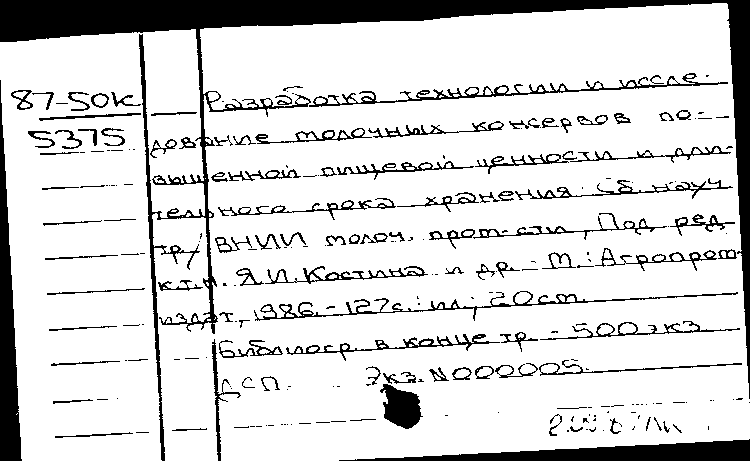 87-50к
5375
Разработка технологии и иссле-
дование молочных консервов по-
вышенной пищевой ценности и дли-
тельного срока хранения: Сб. науч
тр./ ВНИИ молоч. пром-сти, Под ред.
к.т.н. Я.И. Костина и др. - М.: Агропром-
издат, 1986. - 127с.: ил; 20см.
Библиогр. в конце тр. - 500 экз.
ДСП. Экз. N000005.